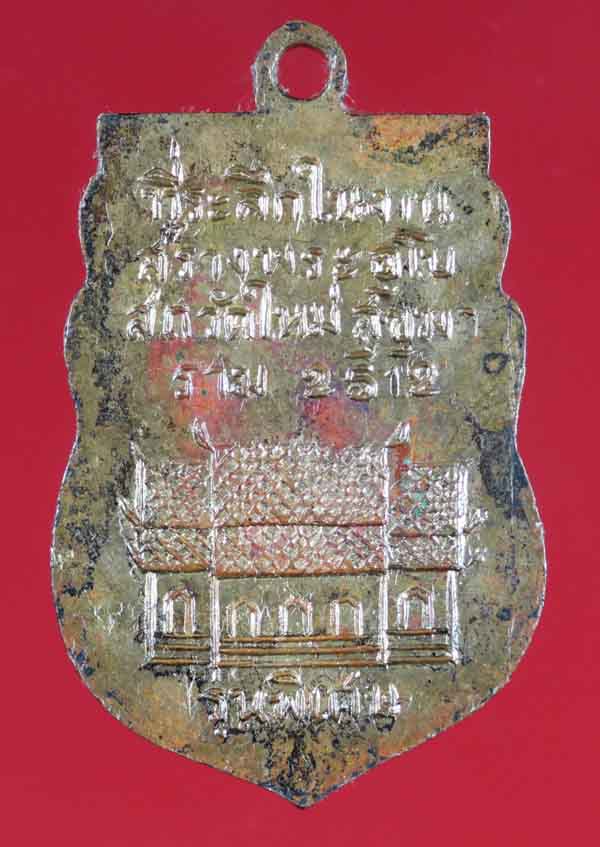 ที่ระลึกในงาน
สร้างพระ อุโบ
สถวัดใหม่
ราม ๒๕๑๒
รุ่นพิเศษ